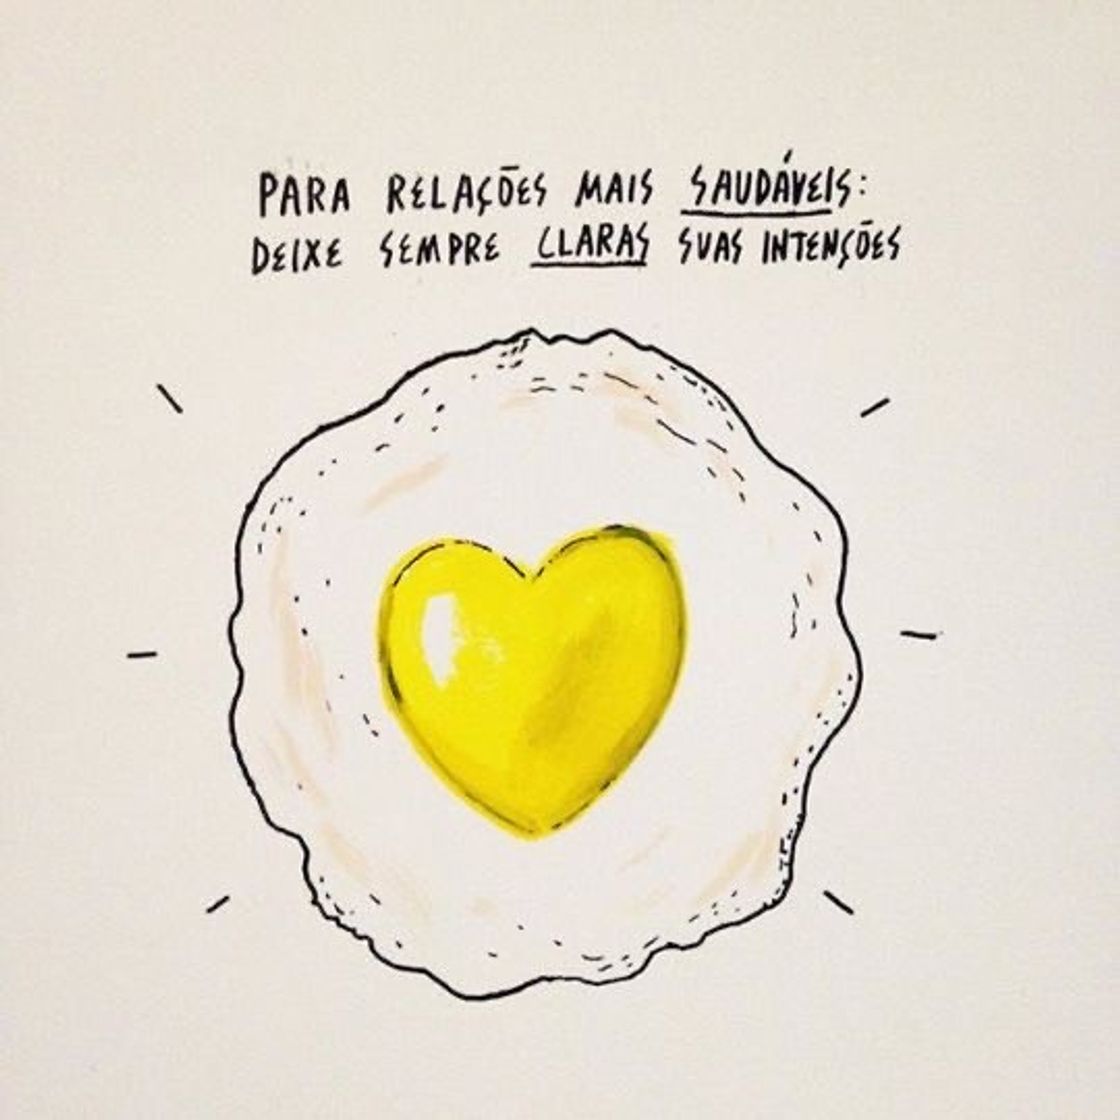 PARA RELAÇÕES MAIS SAUDÁVEIS:
DEIXE SEMPRE CLARAS SUAS INTENÇÕES